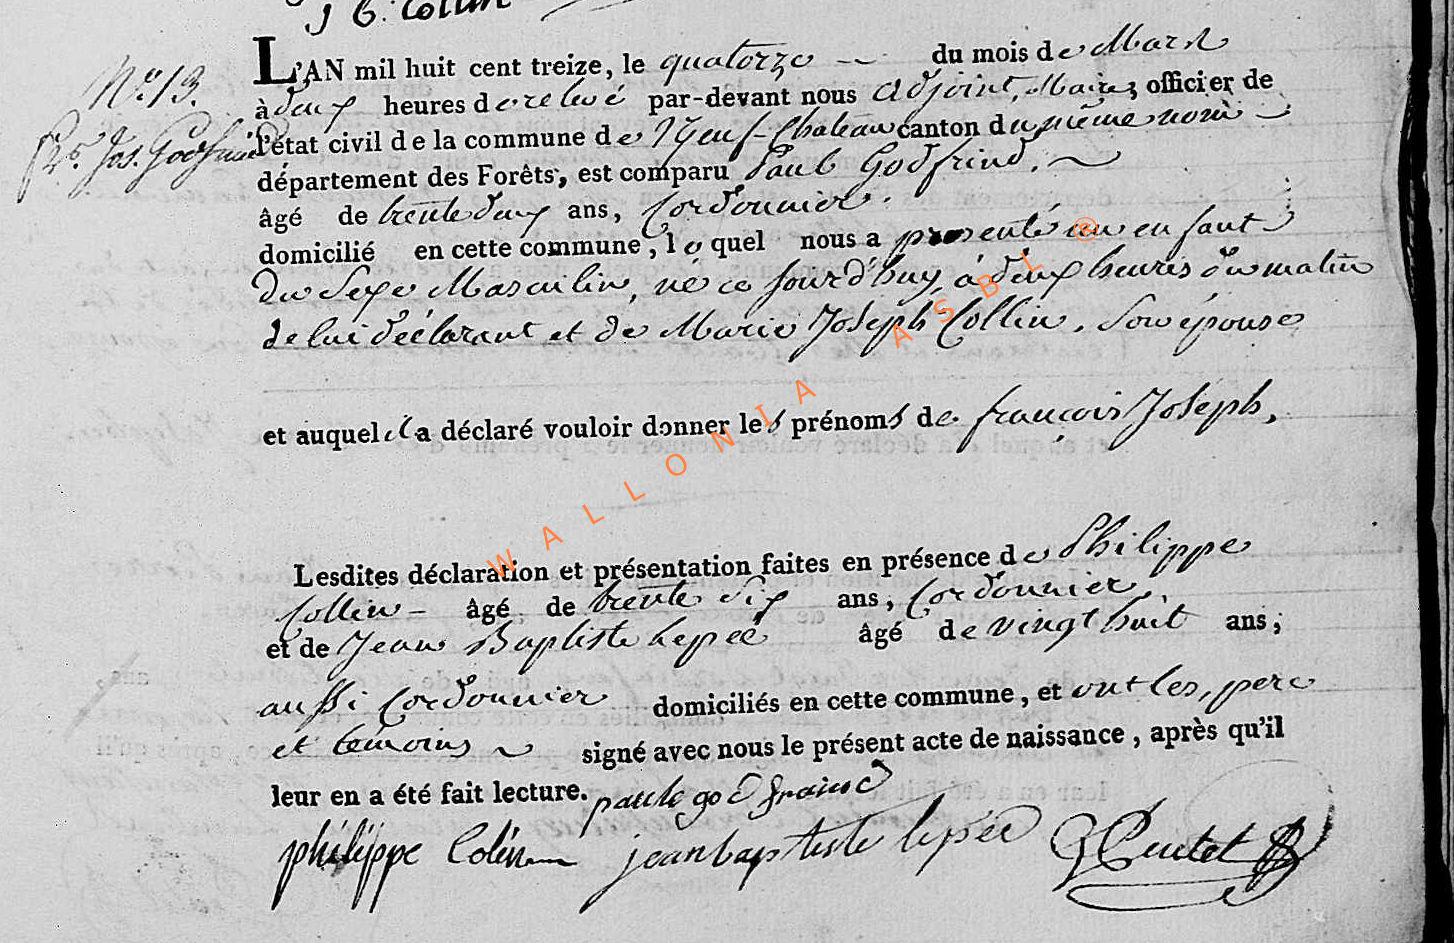 J B. Collin
N.º 13.
fr.s Jos. Godfrind
L'AN mil huit cent treize, le quatorze — du mois de Mars
à deux heures de relevé par-devant nous adjoint, Maire, officier de
l'état civil de la commune de Neuf-Chateau canton du même nom —
département des Forêts, est comparu Paul Godfrind.
âgé de trente deux ans, Cordonnier.
domicilié en cette commune, lequel nous a presenté un enfant
du Sexe Masculin, né ce jourd'huy, à deux heures du matin
de lui déclarant et de Marie Joseph Collin, Son épouse
et auquel il a déclaré vouloir donner les prénoms de françois Joseph,
Lesdites déclaration et présentation faites en présence de Philippe
Collin — âgé de trente Six ans, Cordonnier,
et de Jean Baptiste Lepeé âgé de vingt huit ans;
aussi Cordonnier domiciliés en cette commune, et ont les, pere
et temoins signé avec nous le présent acte de naissance, après qu'il
leur en a été fait lecture. paul godfraind
philippe Colin jeanbaptiste lepée
WALLONIA ASBL ®